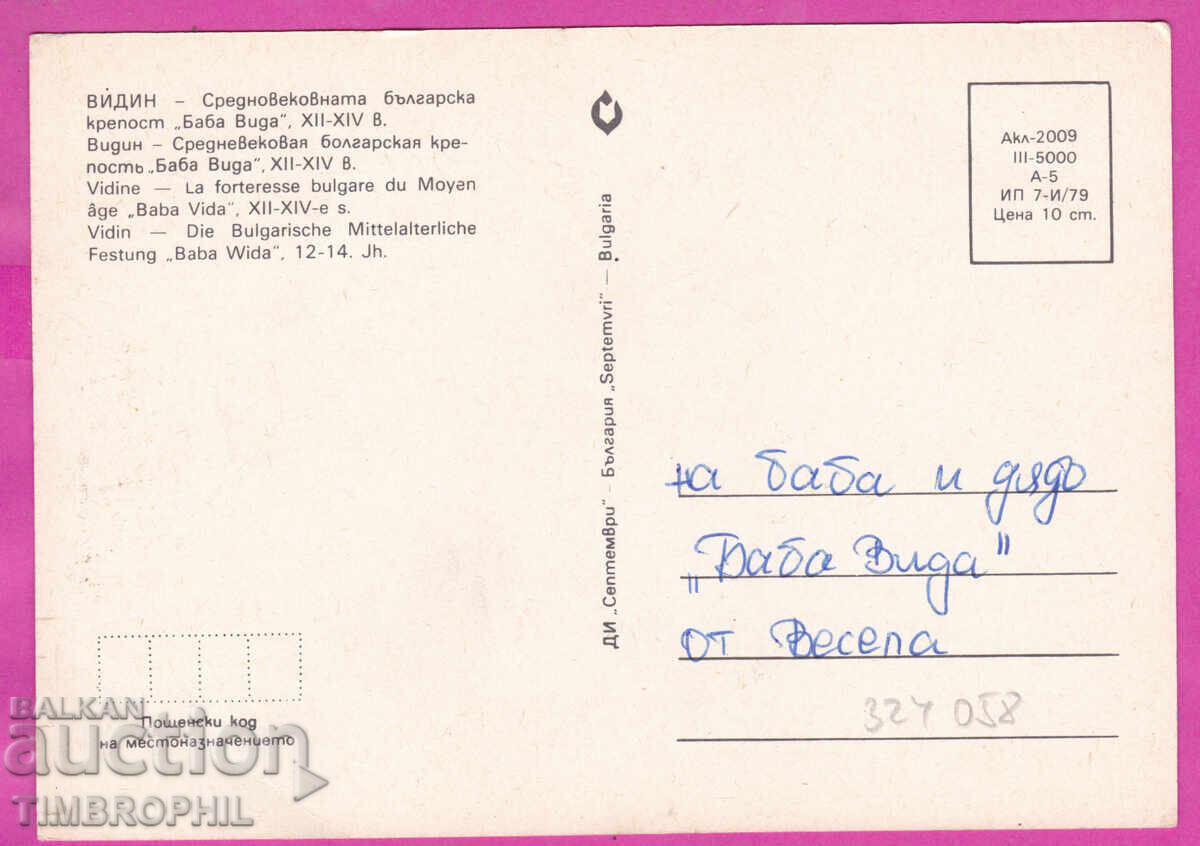 ВИДИН – Средновековната българска
крепост „Баба Вида“, XII-XIV в.
Видин – Средневековая болгарская кре-
пость „Баба Вида“, XII-XIV в.
Vidine — La forteresse bulgare du Moyen
âge „Baba Vida“, XII-XIV-e s.
Vidin — Die Bulgarische Mittelalterliche
Festung „Baba Wida“, 12-14. Jh.
ДИ „Септември“ – България „Septemvri“ — Bulgaria
Акл-2009
III-5000
А-5
ИП 7-И/79
Цена 10 ст.
на баба и дядо
„Баба Вида"
от Весела
324 058
Пощенски код
на местоназначението
BALKAN
auction
TIMBROPHIL